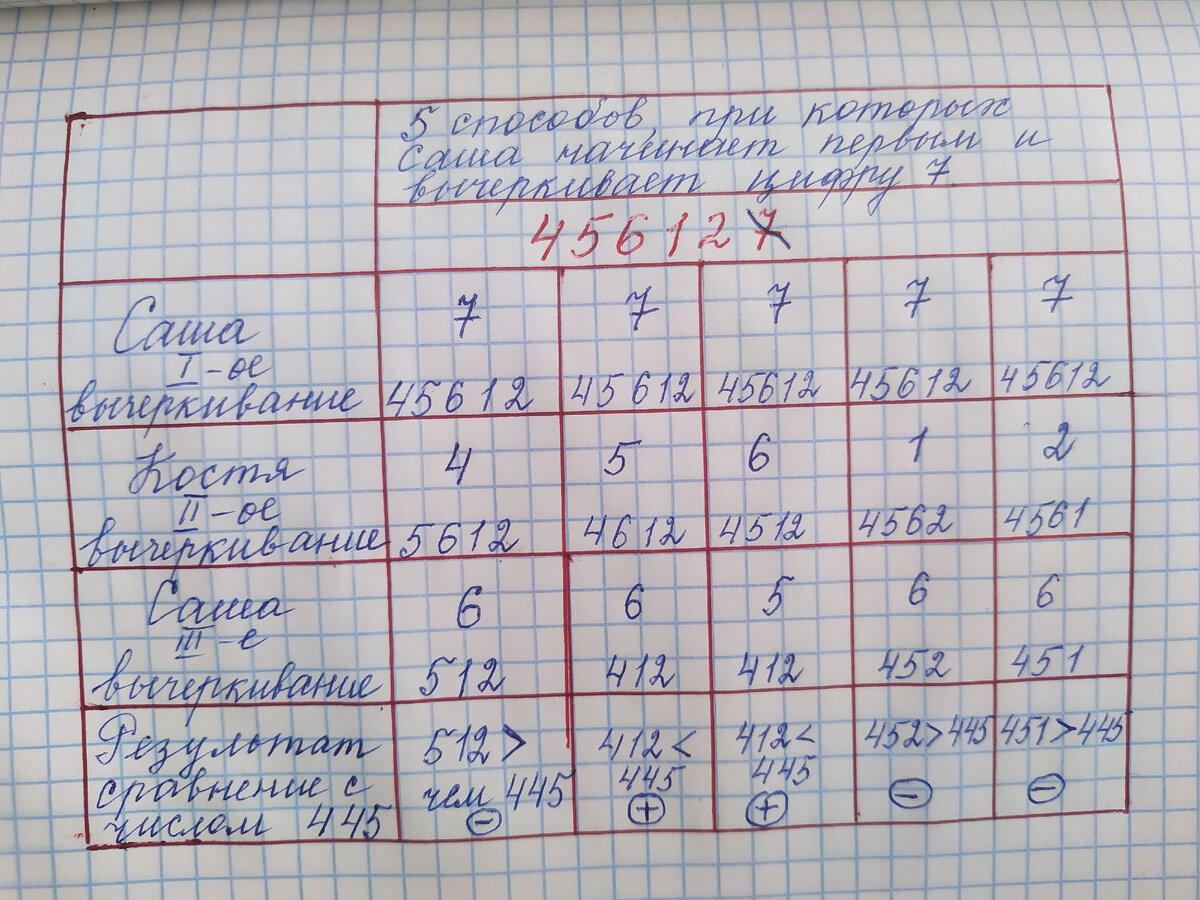 5 способов, при которых
Саша начинает первым и
вычеркивает цифру 7.
456127
Саша
I-ое
вычеркивание
7 7 7 7 7
45612 45612 45612 45612 45612
Костя
II-ое
вычеркивание
4 5 6 1 2
5612 4612 4512 4562 4561
Саша
III-е
вычеркивание
6 6 5 6 6
512 412 412 452 451
Результат
сравнение с
числом 445
512 >
чем 445
-
412 <
445
+
412 <
445
+
452 > 445
-
451 > 445
-